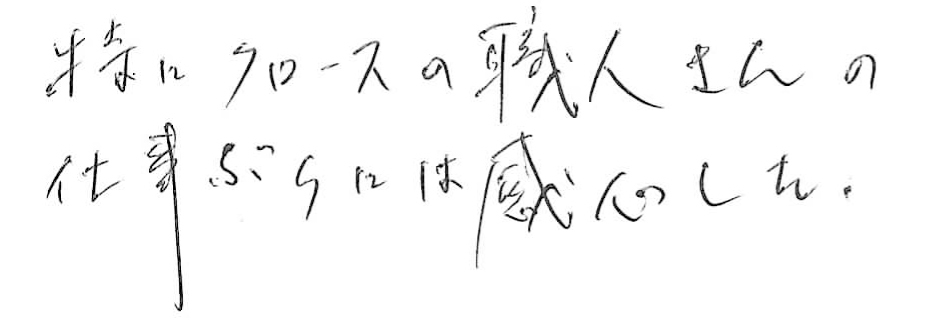 特にクロースの職人さんの
仕事ぶりには感心した.